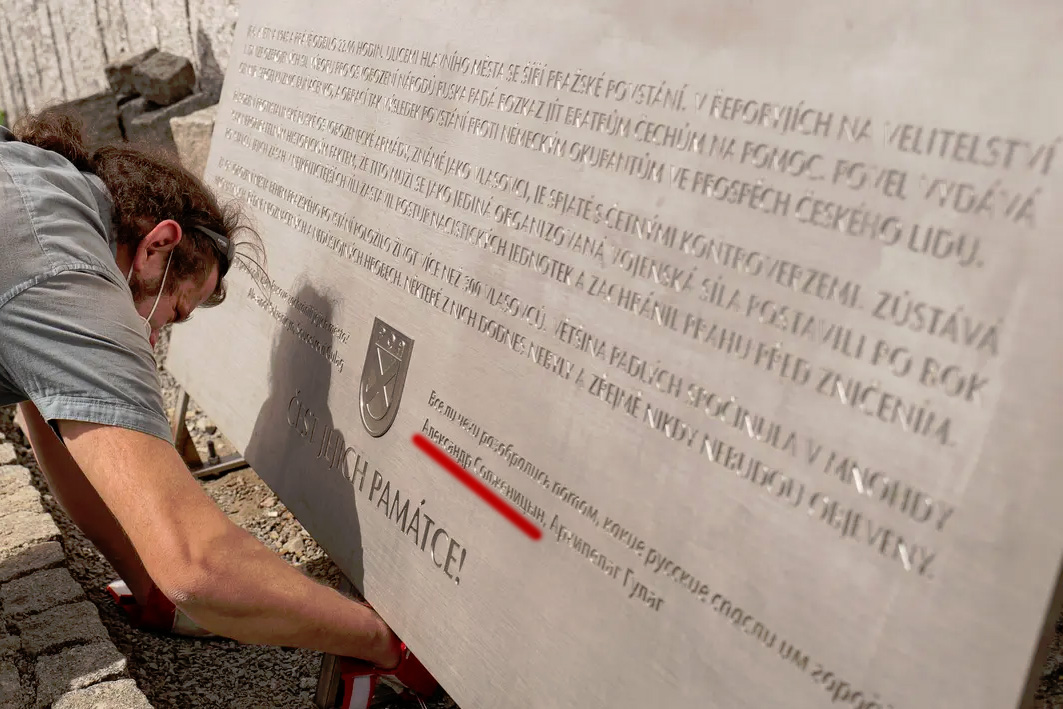 HODIN. ULICEMI HLAVNÍHO MĚSTA SE ŠÍŘÍ PRAŽSKÉ POVSTÁNÍ. V ŘEPORYJÍCH NA VELITELSTVÍ
PRO OSVOBOZENÍ NÁRODŮ RUSKA PADÁ ROZKAZ JÍT BRATRŮM ČECHŮM NA POMOC. POVEL VYDÁVÁ
A OBRACÍ TAK VÝSLEDEK POVSTÁNÍ PROTI NĚMECKÝM OKUPANTŮM VE PROSPĚCH ČESKÉHO LIDU.
OSVOBOZENECKÉ ARMÁDY, ZNÁMÉ JAKO VLASOVCI, JE SPJATÉ S ČETNÝMI KONTROVERZEMI. ZŮSTÁVÁ
HISTORICKÝM FAKTEM, ŽE TITO MUŽI SE JAKO JEDINÁ ORGANIZOVANÁ VOJENSKÁ SÍLA POSTAVILI PO BOK
POSTUP NACISTICKÝCH JEDNOTEK A ZACHRÁNIL PRAHU PŘED ZNIČENÍM.
POLOŽILO ŽIVOT VÍCE NEŽ 300 VLASOVCŮ. VĚTŠINA PADLÝCH SPOČINULA V MNOHDY
HROBECH. NĚKTERÉ Z NICH DODNES NEBYLY A ZŘEJMĚ NIKDY NEBUDOU OBJEVENY.
Все ли чехи разобрались потом, какие русские спасли им город?
Александр Солженицын, Архипелаг Гулаг
ČEST JEJICH PAMÁTCE!